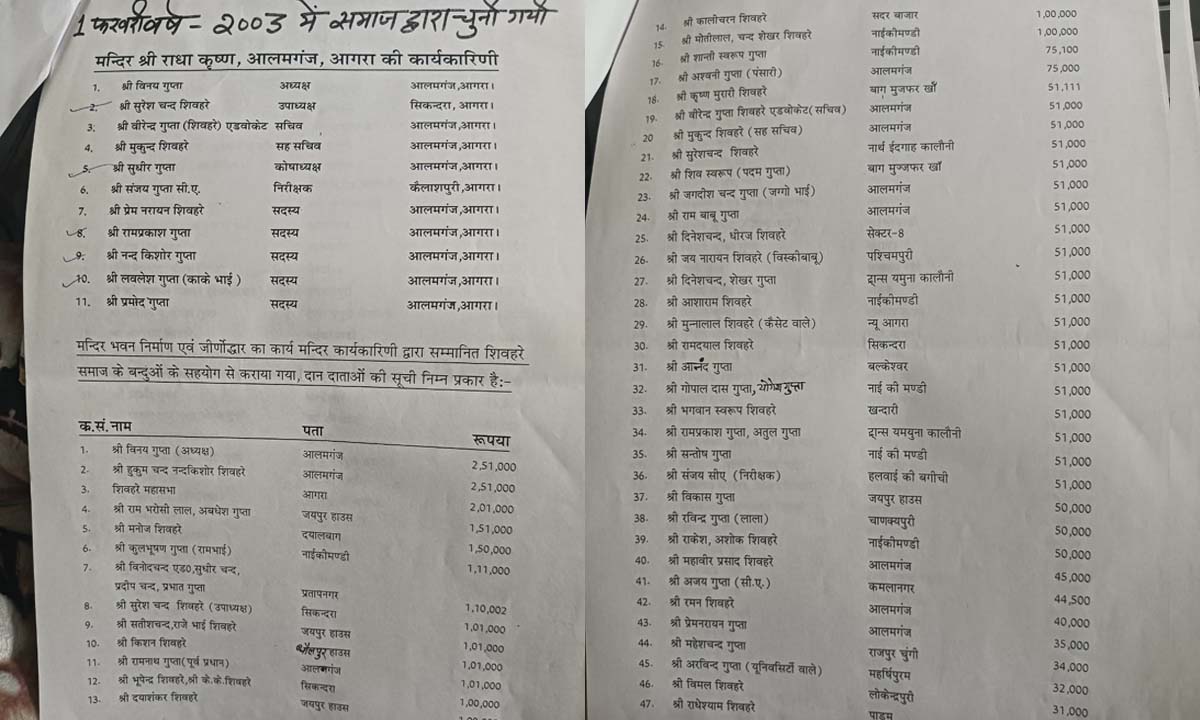 1 फरवरी वर्ष - २००३ में समाज द्वारा चुनी गयी
मन्दिर श्री राधा कृष्ण, आलमगंज, आगरा की कार्यकारिणी
1. श्री विनय गुप्ता अध्यक्ष आलमगंज,आगरा।
2. श्री सुरेश चन्द शिवहरे उपाध्यक्ष सिकन्दरा, आगरा।
3. श्री वीरेन्द्र गुप्ता (शिवहरे) एडवोकेट सचिव आलमगंज,आगरा।
4. श्री मुकुन्द शिवहरे सह सचिव आलमगंज,आगरा।
5. श्री सुधीर गुप्ता कोषाध्यक्ष आलमगंज,आगरा।
6. श्री संजय गुप्ता सी.ए. निरीक्षक कैलाशपुरी,आगरा।
7. श्री प्रेम नरायन शिवहरे सदस्य आलमगंज,आगरा।
8. श्री रामप्रकाश गुप्ता सदस्य आलमगंज,आगरा।
9. श्री नन्द किशोर गुप्ता सदस्य आलमगंज,आगरा।
10. श्री लवलेश गुप्ता (काके भाई ) सदस्य आलमगंज,आगरा।
11. श्री प्रमोद गुप्ता सदस्य आलमगंज,आगरा।
मन्दिर भवन निर्माण एवं जीर्णोद्धार का कार्य मन्दिर कार्यकारिणी द्वारा सम्मानित शिवहरे
समाज के बन्दुओं के सहयोग से कराया गया, दान दाताओं की सूची निम्न प्रकार है:-
क.सं. नाम पता रूपया
1. श्री विनय गुप्ता (अध्यक्ष) आलमगंज 2,51,000
2. श्री हुकुम चन्द नन्दकिशोर शिवहरे आलमगंज 2,51,000
3. शिवहरे महासभा आगरा 2,01,000
4. श्री राम भरोसी लाल, अबधेश गुप्ता जयपुर हाउस 1,51,000
5. श्री मनोज शिवहरे दयालबाग 1,50,000
6. श्री कुलभूषण गुप्ता (रामभाई) नाईकीमण्डी 1,11,000
7. श्री विनोदचन्द एड0,सुधीर चन्द,
प्रदीप चन्द, प्रभात गुप्ता प्रतापनगर 1,10,002
8. श्री सुरेश चन्द शिवहरे (उपाध्यक्ष) सिकन्दरा 1,01,000
9. श्री सतीशचन्द,राजे भाई शिवहरे जयपुर हाउस 1,01,000
10. श्री किशन शिवहरे धौलपुर हाउस 1,01,000
11. श्री रामनाथ गुप्ता(पूर्व प्रधान) आलमगंज 1,01,000
12. श्री भूपेन्द्र शिवहरे,श्री के.के.शिवहरे सिकन्दरा 1,00,000
13. श्री दयाशंकर शिवहरे जयपुर हाउस
14. श्री कालीचरन शिवहरे सदर बाजार 1,00,000
15. श्री मोतीलाल, चन्द शेखर शिवहरे नाईकीमण्डी 1,00,000
16. श्री शान्ती स्वरूप गुप्ता नाईकीमण्डी 75,100
17. श्री अश्वनी गुप्ता (पंसारी) आलमगंज 75,000
18. श्री कृष्ण मुरारी शिवहरे बाग मुजफर खाँ 51,111
19. श्री वीरेन्द्र गुप्ता शिवहरे एडवोकेट(सचिव) आलमगंज 51,000
20 श्री मुकुन्द शिवहरे (सह सचिव) आलमगंज 51,000
21. श्री सुरेशचन्द शिवहरे नार्थ ईदगाह कालौनी 51,000
22. श्री शिव स्वरूप (पदम गुप्ता) बाग मुज्जफर खाँ 51,000
23. श्री जगदीश चन्द गुप्ता (जग्गो भाई) आलमगंज 51,000
24. श्री राम बाबू गुप्ता आलमगंज 51,000
25. श्री दिनेशचन्द, धीरज शिवहरे सेक्टर-8 51,000
26. श्री जय नारायन शिवहरे (विस्कीबाबू) पश्चिमपुरी 51,000
27. श्री दिनेशचन्द, शेखर गुप्ता ट्रान्स यमुना कालौनी 51,000
28. श्री आशाराम शिवहरे नाईकीमण्डी 51,000
29. श्री मुन्नालाल शिवहरे (कैसेट वाले) न्यू आगरा 51,000
30. श्री रामदयाल शिवहरे सिकन्दरा 51,000
31. श्री आनंद गुप्ता बल्केश्वर 51,000
32. श्री गोपाल दास गुप्ता, योगेश गुप्ता नाई की मण्डी 51,000
33. श्री भगवान स्वरूप शिवहरे खन्दारी 51,000
34. श्री रामप्रकाश गुप्ता, अतुल गुप्ता ट्रान्स यमयुना कालौनी 51,000
35. श्री सन्तोष गुप्ता नाई की मण्डी 51,000
36. श्री संजय सीए (निरीक्षक) हलवाई की बगीची 51,000
37. श्री विकास गुप्ता जयपुर हाउस 50,000
38. श्री रविन्द्र गुप्ता (लाला) चाणक्यपुरी 50,000
39. श्री राकेश, अशोक शिवहरे नाईकीमण्डी 50,000
40. श्री महावीर प्रसाद शिवहरे आलमगंज 45,000
41. श्री अजय गुप्ता (सी.ए.) कमलानगर 44,500
42. श्री रमन शिवहरे आलमगंज 40,000
43. श्री प्रेमनरायन गुप्ता आलमगंज 35,000
44. श्री महेशचन्द गुप्ता राजपुर चुंगी 34,000
45. श्री अरविन्द गुप्ता (यूनिवसिर्टी वाले) महर्षिपुरम 32,000
46. श्री विमल शिवहरे लोकेन्द्रपुरी 31,000
47. श्री राधेश्याम शिवहरे पाडम